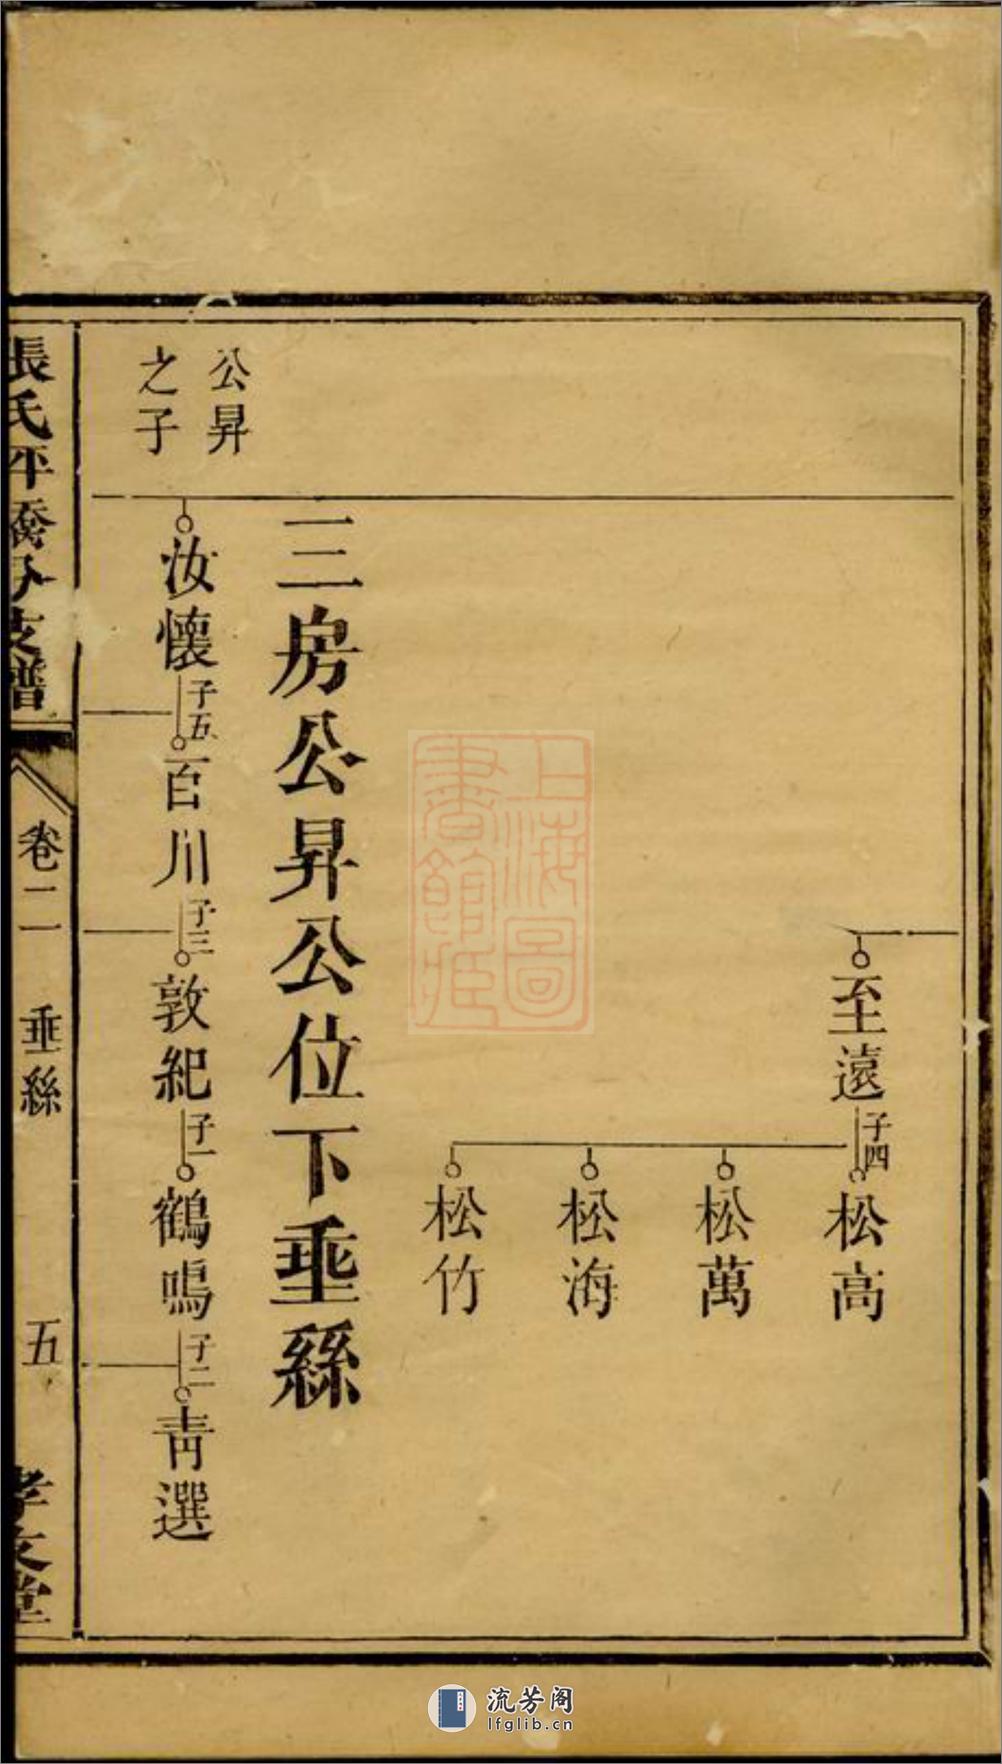 至遠
子四
松高
松萬
松海
松竹
上海圖
書館藏
三房公昇公位下垂絲
公昇
之子
汝懷
子五
百川
子三
敦紀
子一
鶴鳴
子二
靑選
張氏坪橋分支譜
卷二
垂絲
五
孝友堂
流芳阁
lfglib.cn